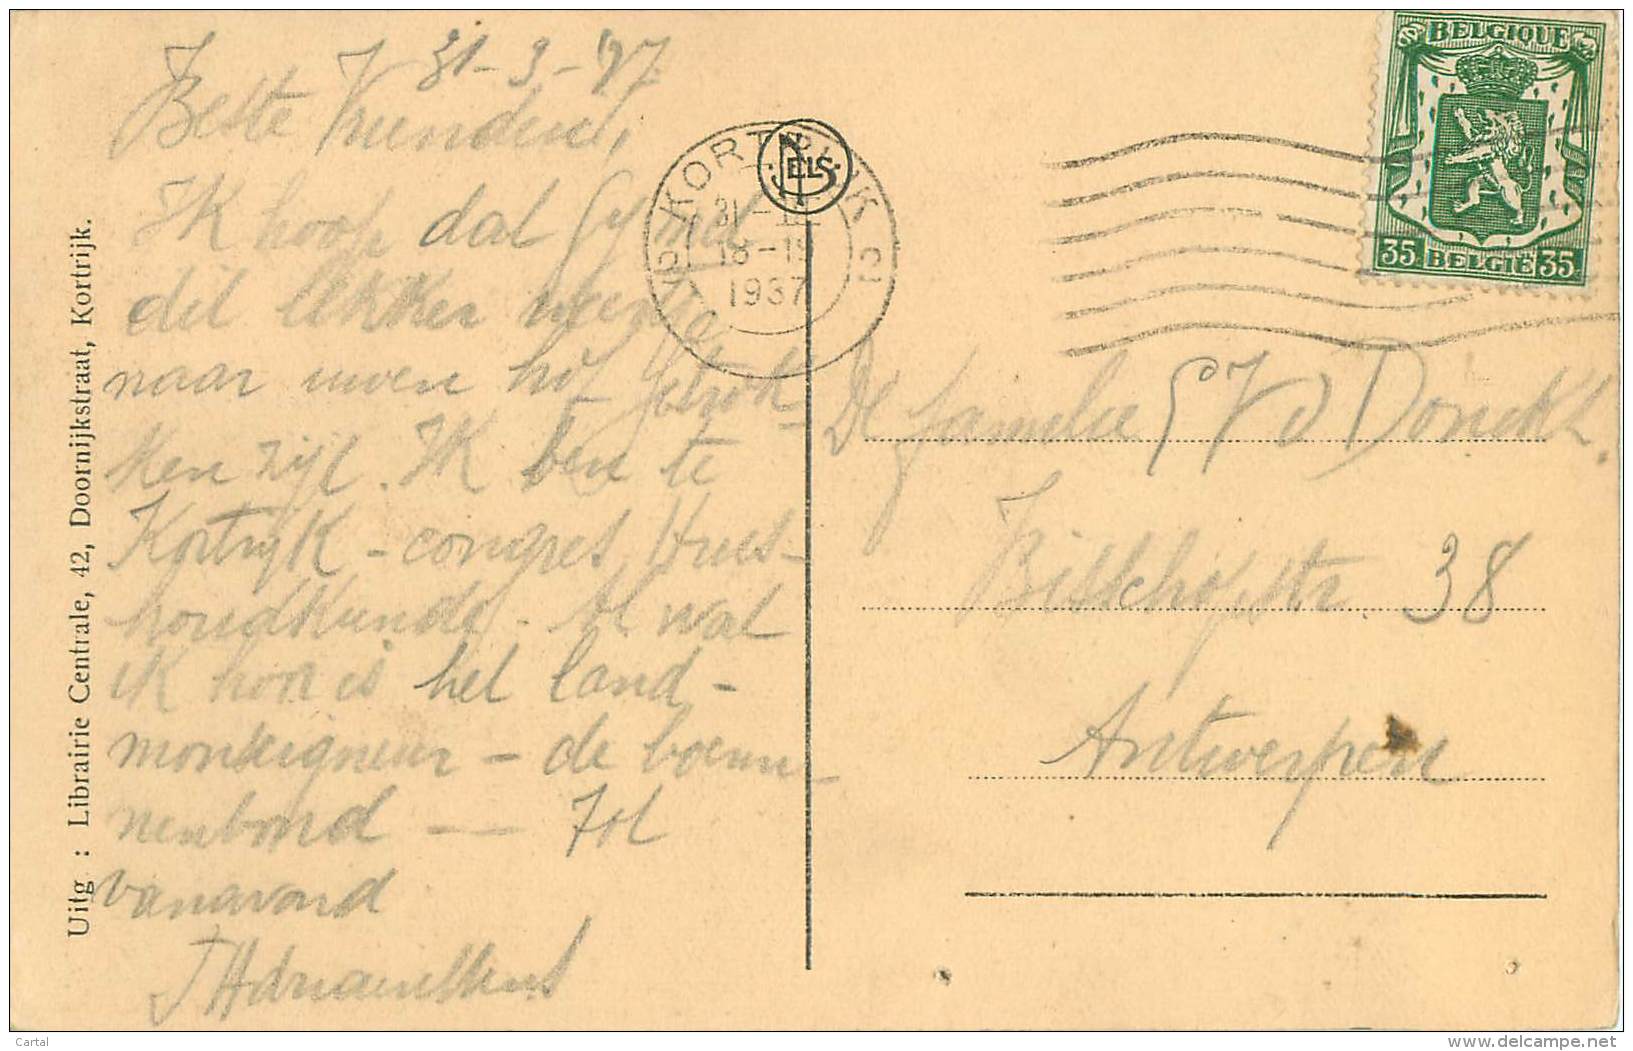 31-3-'37
Beste Vrienden,
Ik hoop dat Gij met
dit lekker weertje
naar uwen hof getrok-
ken zijt. Ik ben te
Kortrijk - congres Huis-
houdkunde. Al wat
ik hoor is het land -
monseigneur - de boerin-
nenbond — Tot
vanavond
J Adriaenssens
De familie V d Donckt.
Bisschopstr. 38
Antwerpen
KORTRIJK
31-III
18-19
1937
NELS
BELGIQUE
35 BELGIË 35
Uitg : Librairie Centrale, 42, Doornijkstraat, Kortrijk.
Cartal
www.delcampe.net